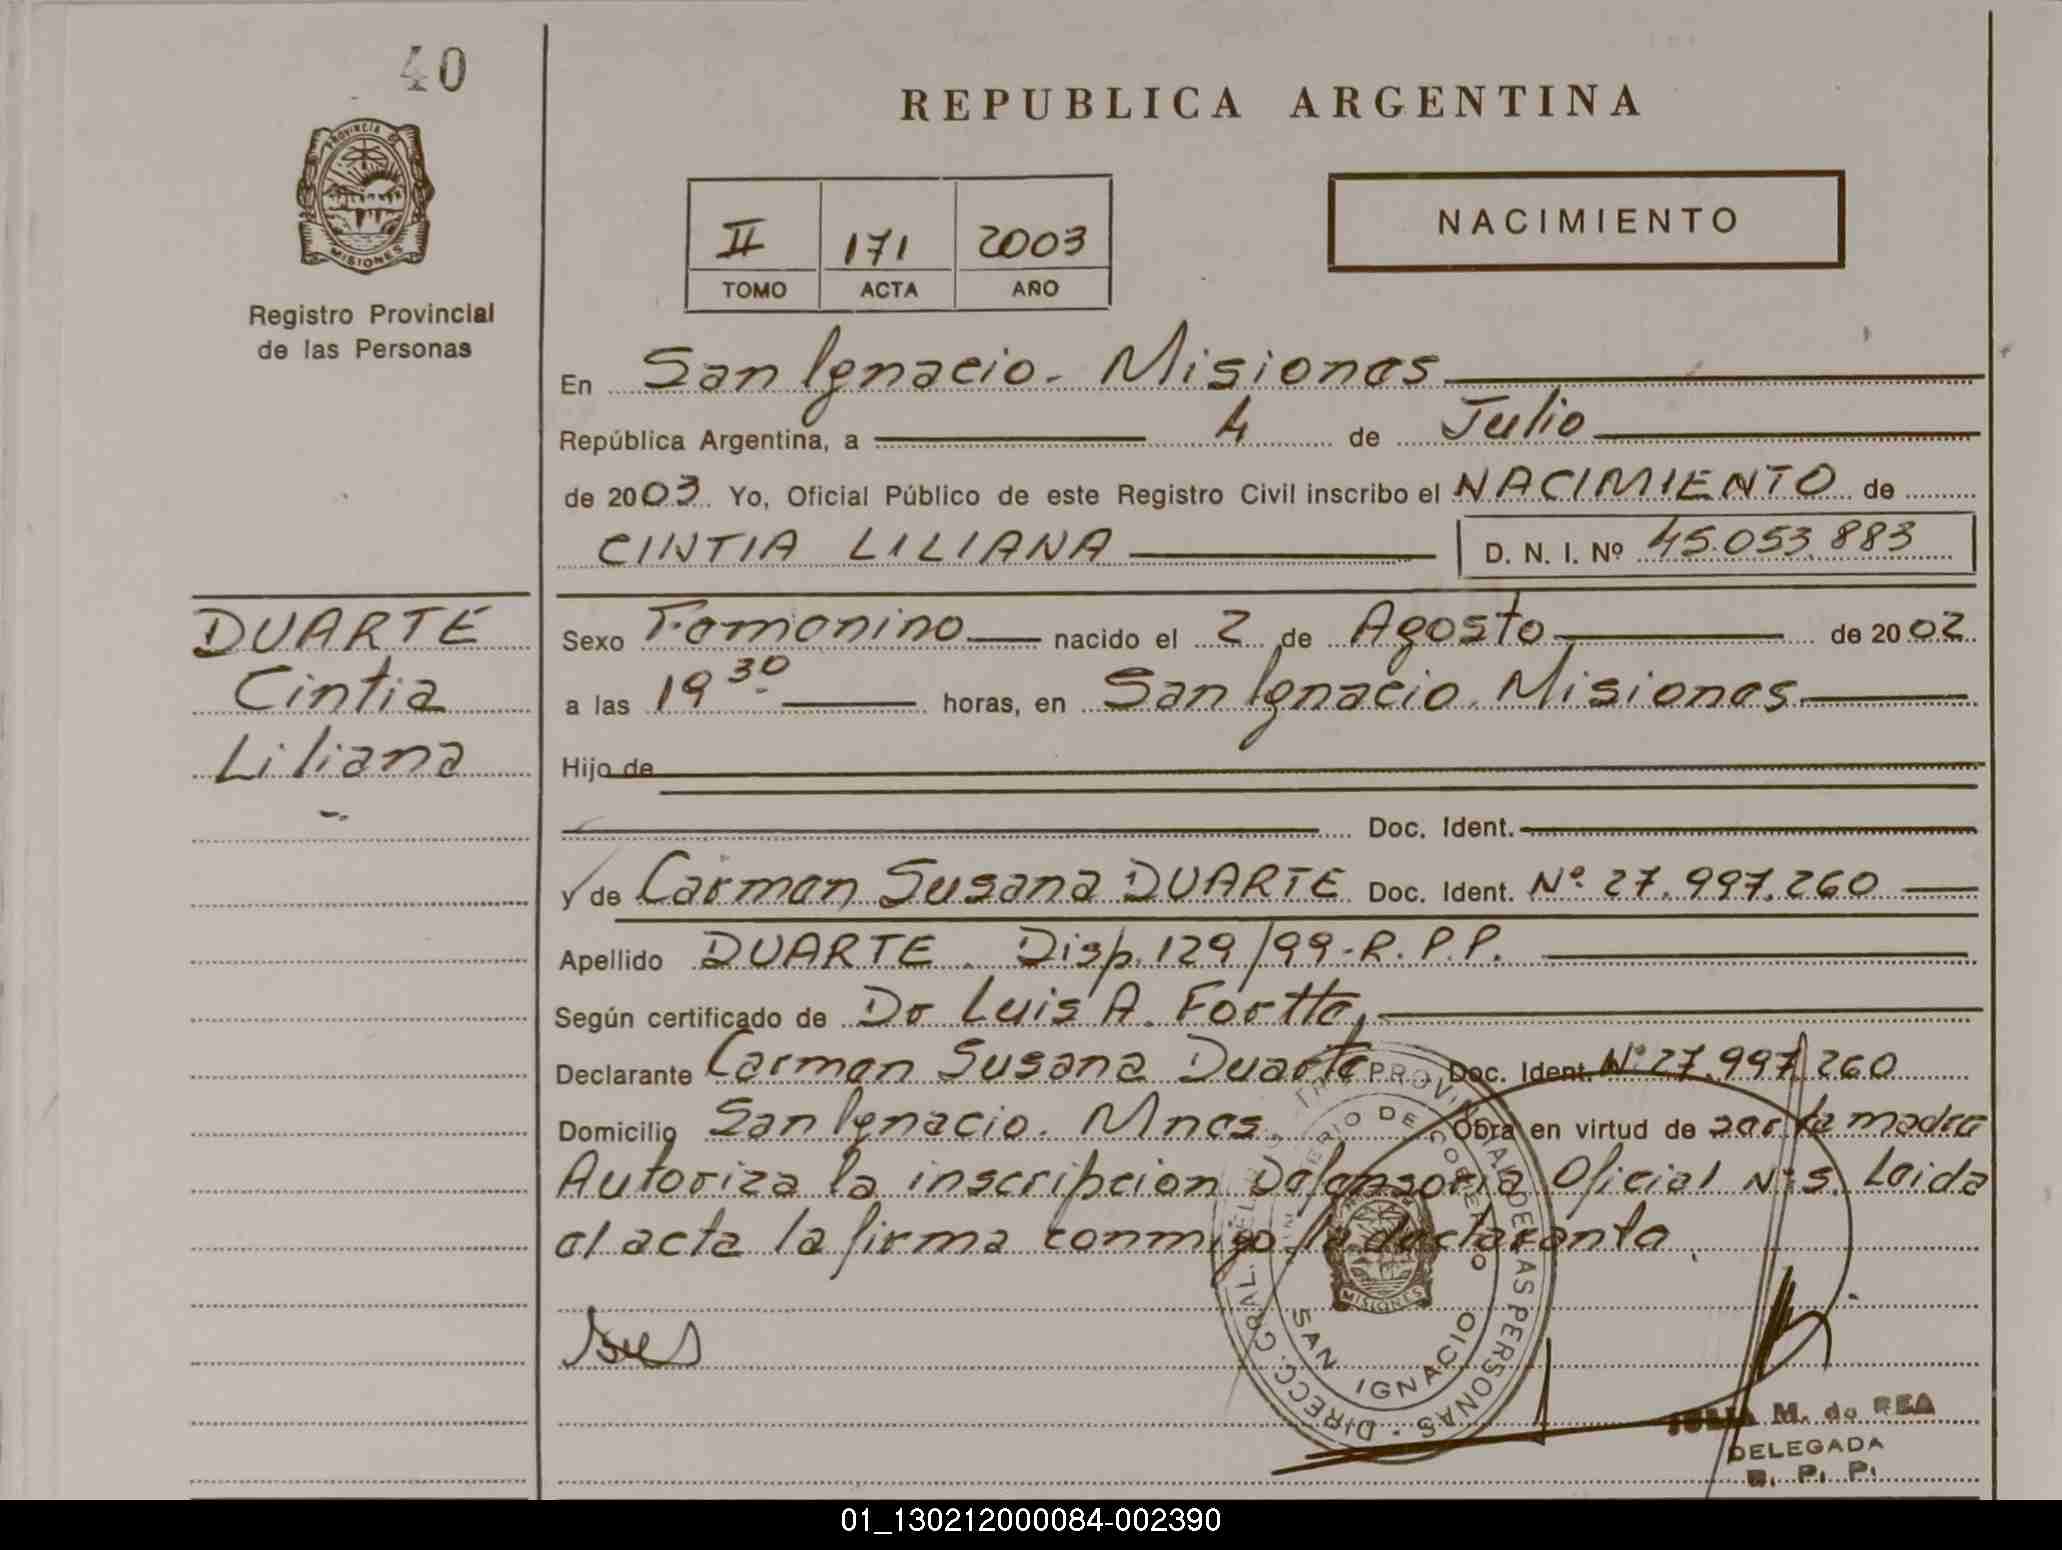 40
REPUBLICA ARGENTINA
PROVINCIA DE
MISIONES
Registro Provincial
de las Personas
II 171 2003
TOMO ACTA AÑO
NACIMIENTO
En San Ignacio - Misiones
República Argentina, a 4 de Julio
de 2003. Yo, Oficial Público de este Registro Civil inscribo el NACIMIENTO de
CINTIA LILIANA D. N. I. Nº 45.053.883
DUARTE
Cintia
Liliana
Sexo Femenino nacido el 2 de Agosto de 2002
a las 19 30 horas, en San Ignacio. Misiones
Hijo de
Doc. Ident.
y de Carmen Susana DUARTE Doc. Ident. Nº 27.997.260
Apellido DUARTE. Disp. 129/99-R.P.P.
Según certificado de Dr Luis A.
Declarante Carmen Susana Duarte Doc. Ident. Nº 27.997.260
Domicilio San Ignacio. Mnes. Obra en virtud de ser la madre
Autoriza la inscripcion Defensoria Oficial Leida
el acta la firma conmigo la declarante.
DIRECC. GRAL. PROVINCIAL DE LAS PERSONAS
DE GOBIERNO
MISIONES
SAN IGNACIO
JULIA M. de REA
DELEGADA
R. P. P.
01_130212000084-002390